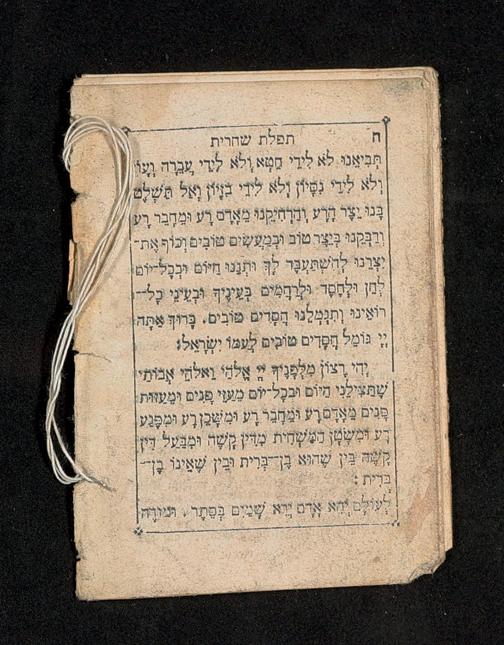 ח תפלת שחרית
תְּבִיאֵנוּ לֹא לִידֵי חֵטְא וְלֹא לִידֵי עֲבֵרָה וְעָוֹן
וְלֹא לִידֵי נִסָּיוֹן וְלֹא לִידֵי בִזָּיוֹן וְאַל תַּשְׁלֶט
בָּנוּ יֵצֶר הָרָע וְהַרְחִיקֵנוּ מֵאָדָם רָע וּמֵחָבֵר רָע
וְדַבְּקֵנוּ בְּיֵצֶר טוֹב וּבְמַעֲשִׂים טוֹבִים וְכוֹף אֶת־
יִצְרֵנוּ לְהִשְׁתַּעְבֶּד לָךְ וּתְנֵנוּ הַיּוֹם וּבְכָל־יוֹם
לְחֵן וּלְחֶסֶד וּלְרַחֲמִים בְּעֵינֶיךָ וּבְעֵינֵי כָל־
רוֹאֵינוּ וְתִגְמְלֵנוּ חֲסָדִים טוֹבִים. בָּרוּךְ אַתָּה
יְיָ גּוֹמֵל חֲסָדִים טוֹבִים לְעַמּוֹ יִשְׂרָאֵל:
יְהִי רָצוֹן מִלְּפָנֶיךָ יְיָ אֱלֹהַי וֵאלֹהֵי אֲבוֹתַי
שֶׁתַּצִּילֵנִי הַיּוֹם וּבְכָל־יוֹם מֵעַזֵּי פָנִים וּמֵעַזּוּת
פָּנִים מֵאָדָם רָע וּמֵחָבֵר רָע וּמִשָּׁכֵן רָע וּמִפֶּגַע
רָע וּמִשָּׂטָן הַמַּשְׁחִית מִדִּין קָשֶׁה וּמִבַּעַל דִּין
קָשֶׁה בֵּין שֶׁהוּא בֶן־בְּרִית וּבֵין שֶׁאֵינוֹ בֶן־
בְּרִית:
לְעוֹלָם יְהֵא אָדָם יְרֵא שָׁמַיִם בְּסֵתֶר. וּמוֹדֶה